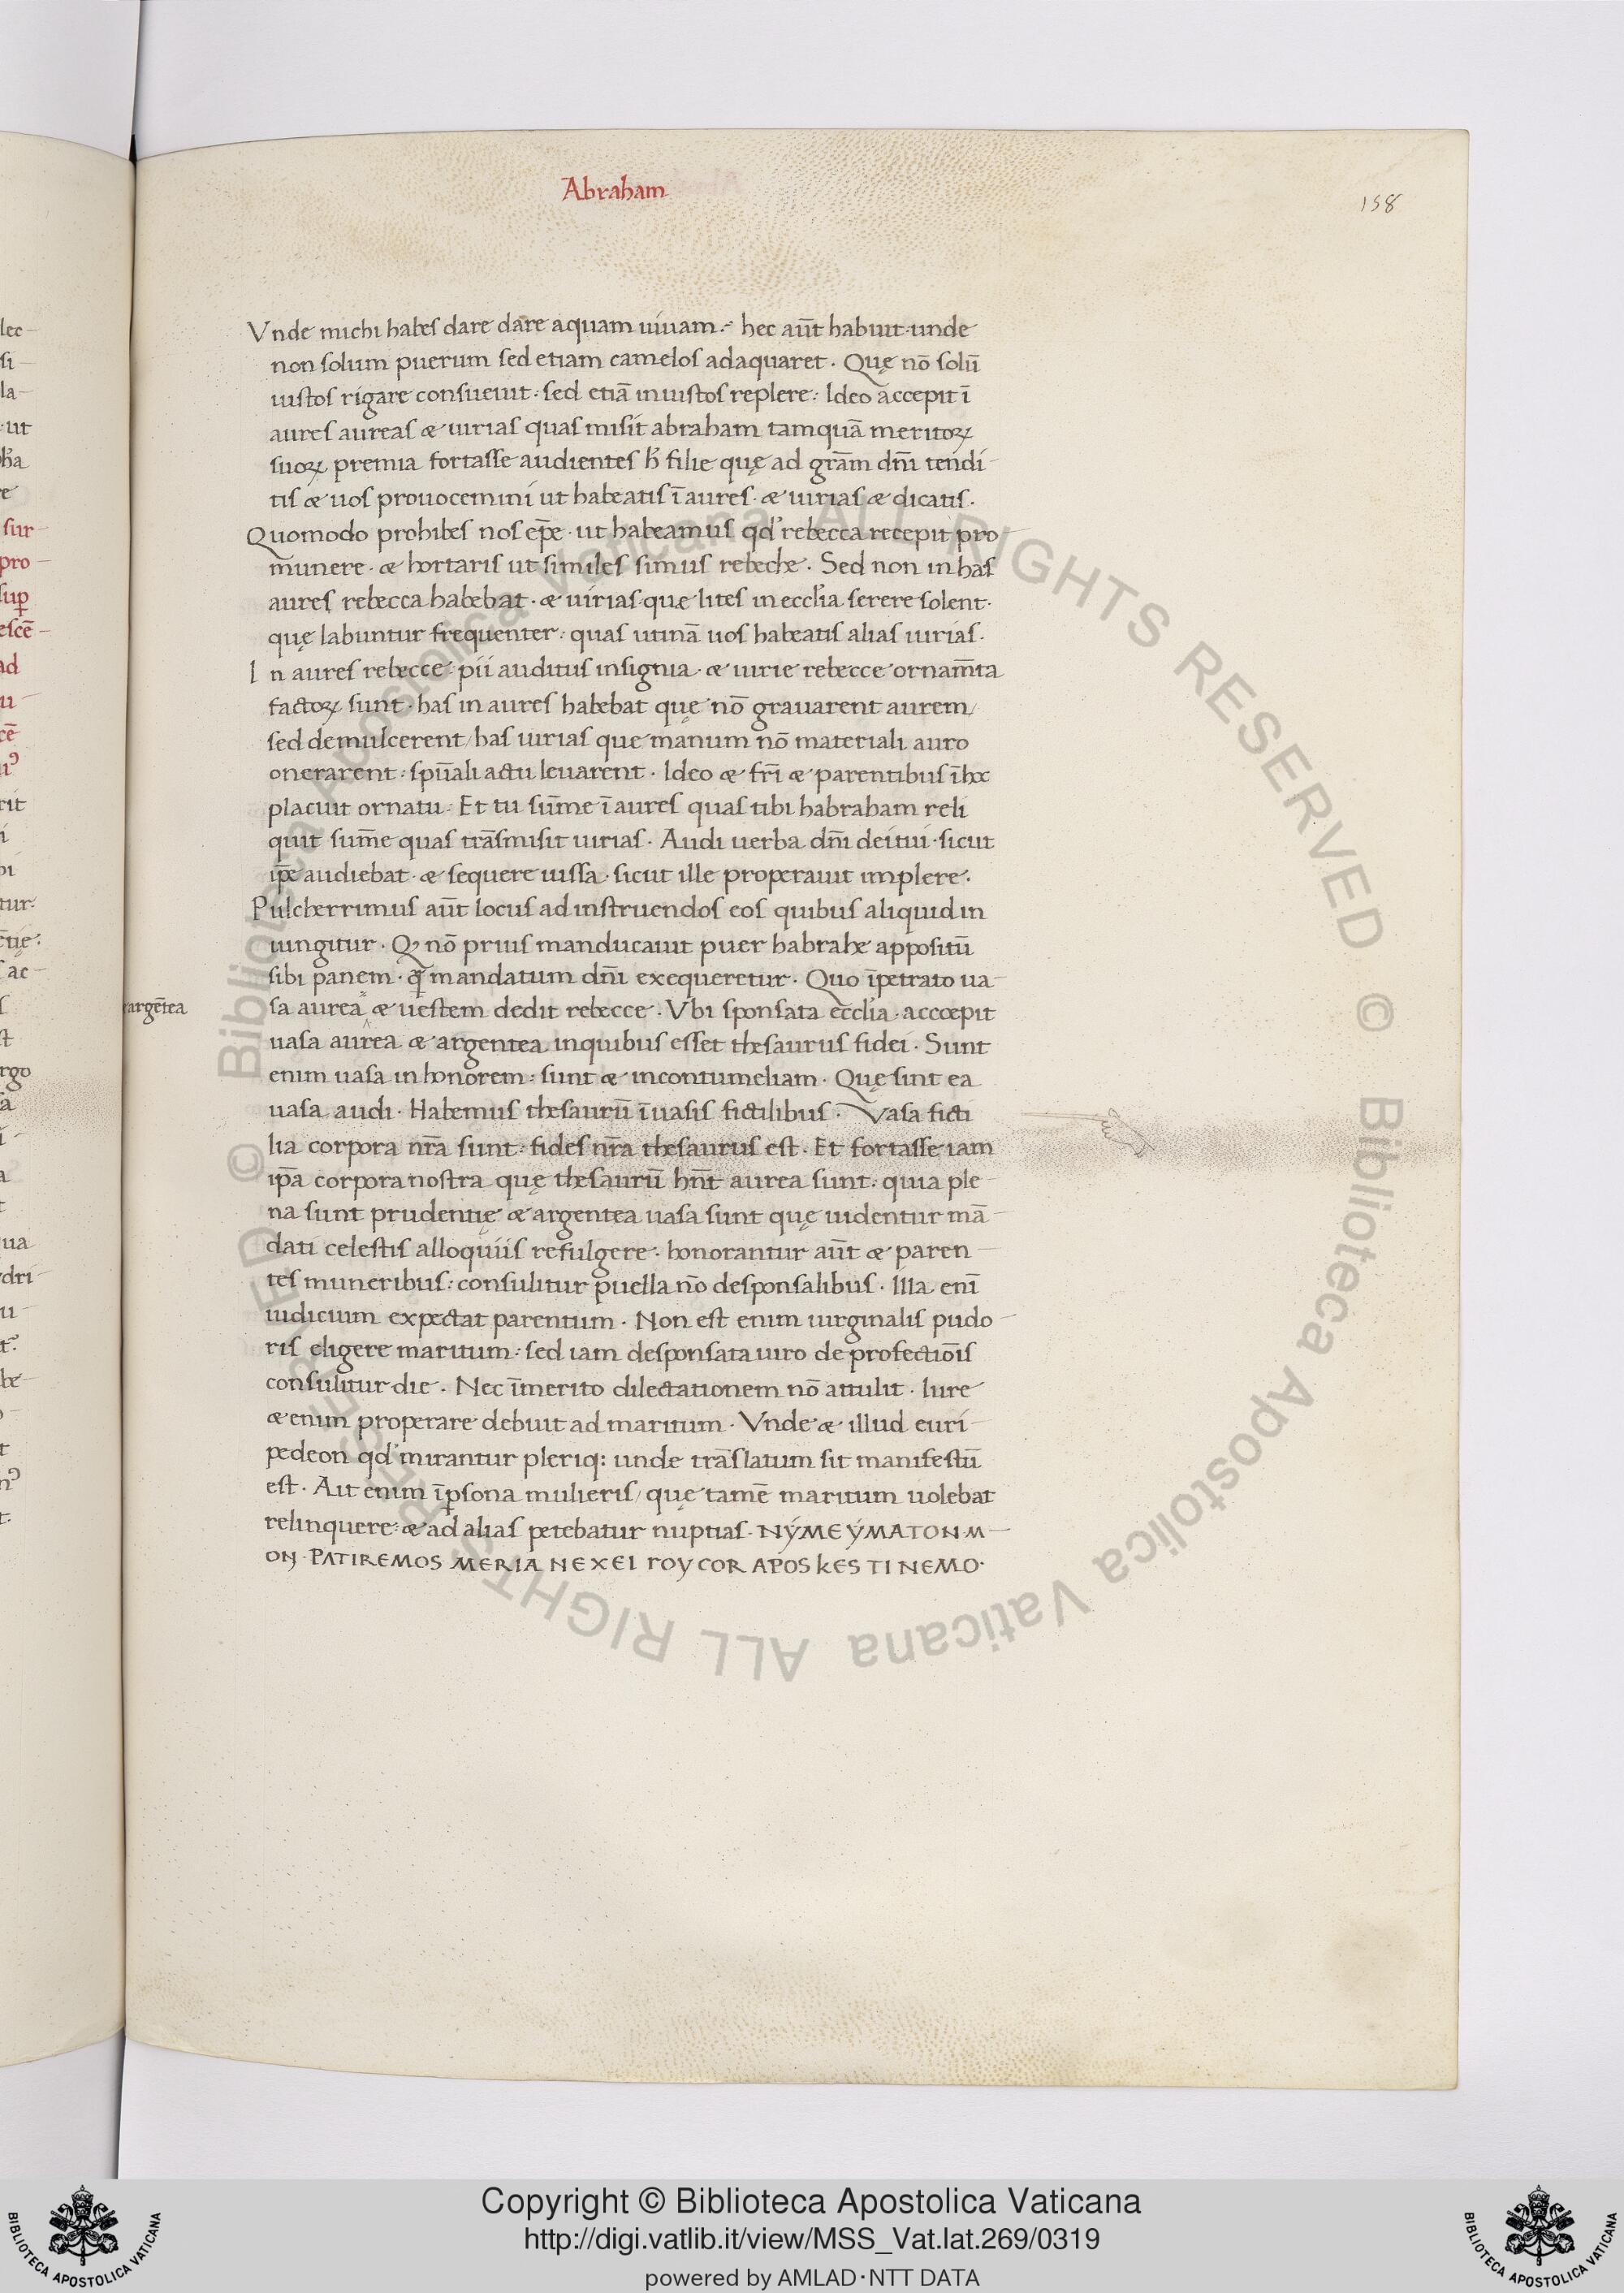 Abraham
158
Vnde michi habes dare dare aquam uiuam. hec aūt habuit unde
non solum puerum sed etiam camelos adaquaret. Quę nō solū
iustos rigare consueuit: sed etiā iniustos replere: Ideo accepit ī
aures aureas & uirias quas misit abraham tamquā meritoꝝ
suoꝝ premia fortasse audientes h̄ filie quę ad grām dn̄i tendi-
tis & uos prouocemini ut habeatis ī aures. & uirias & dicatis.
Quomodo prohibes nos ep̄e. ut habeamus qd' rebecca recepit pro
munere. & hortaris ut similes simus rebeche. Sed non in has
aures rebecca habebat. & uirias que lites in eccl'ia serere solent.
quę labuntur frequenter: quas utinā uos habeatis alias uirias.
In aures rebecce pii auditus insignia. & uirie rebecce ornam̄ta
factoꝝ sunt. has in aures habebat quę nō grauarent aurem/
sed demulcerent/ has uirias que manum nō materiali auro
onerarent: spūali actu leuarent. Ideo & fr̄i & parentibus ī hoc
placuit ornatu. Et tu sūme ī aures quas tibi habraham reli
quit sūme quas trāsmisit uirias. Audi uerba dn̄i dei tui. sicut
ip̄e audiebat. & sequere iussa. sicut ille properauit implere.
Pulcherrimus aūt locus ad instruendos eos quibus aliquid in
iungitur. Qꝫ nō prius manducauit puer habrahe appositū
sibi panem. qꝫ mandatum dn̄i exequeretur. Quo īpetrato ua-
argēтea
sa aurea & uestem dedit rebecce. Vbi sponsata eccl'ia. accœpit
uasa aurea & argentea inquibus esset thesaurus fidei. Sunt
enim uasa in honorem: sunt & incontumeliam. Quę sint ea
uasa audi. Habemus thesaurū ī uasis fictilibus. Vasa ficti
lia corpora nr̄a sunt. fides nr̄a thesaurus est. Et fortasse iam
ip̄a corpora nostra quę thesaurū hn̄t aurea sunt: quia ple-
na sunt prudentię & argentea uasa sunt quę uidentur mā-
dati celestis alloquiis refulgere: honorantur aūt & paren-
tes muneribus: consulitur puella nō desponsalibus. Illa enī
iudicium expectat parentum. Non est enim uirginalis pudo-
ris eligere maritum: sed iam desponsata uiro de profectiōis
consulitur die. Nec īmerito dilectationem nō attulit. Iure
& enim properare debuit ad maritum. Vnde & illud euri-
pedeon qd' mirantur pleriq: unde trāslatum sit manifestū
est. Ait enim īpsona mulieris/ quę tamē maritum uolebat
relinquere: & ad alias petebatur nuptias. NÝMEÝMATON M-
ON. PATIREMOS MERIA NEXEI ΓOY COR APOS KES TI NEMO.
Copyright © Biblioteca Apostolica Vaticana
http://digi.vatlib.it/view/MSS_Vat.lat.269/0319
powered by AMLAD·NTT DATA